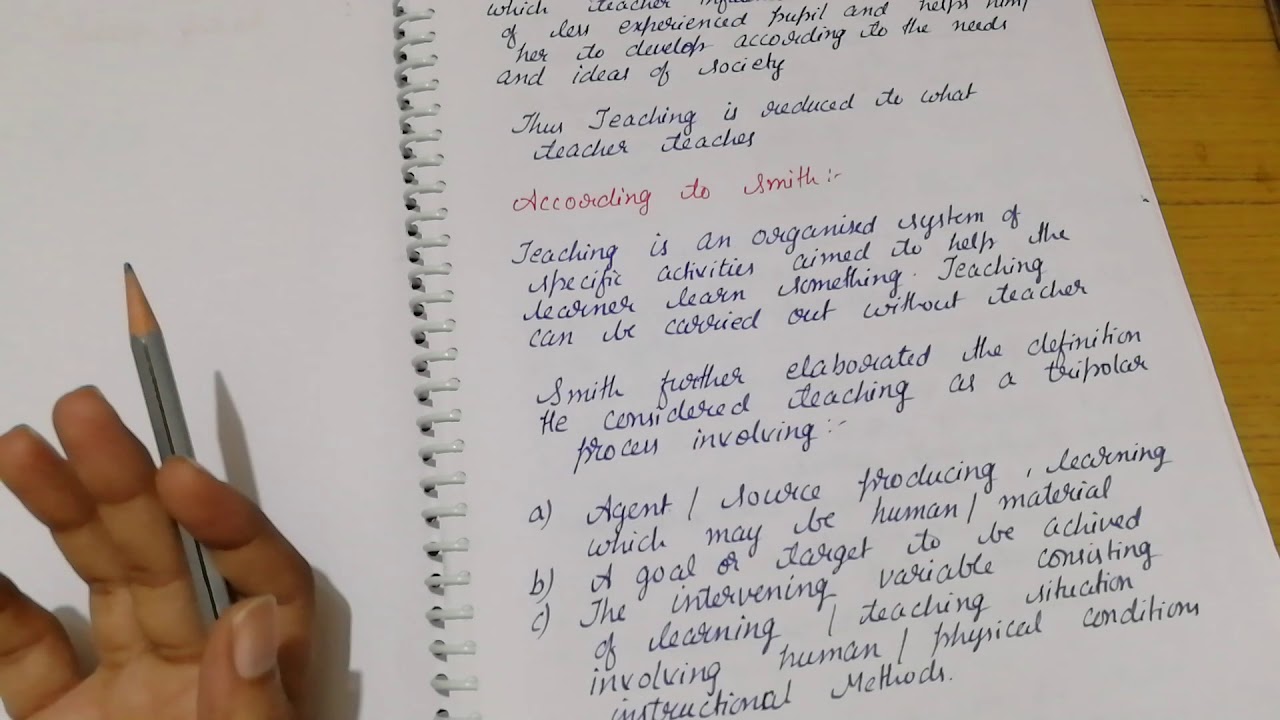 which teacher
of less experienced pupil and helps him/
her to develop according to the needs
and ideas of society
Thus Teaching is reduced to what
teacher teaches
According to Smith:-
Teaching is an organised system of
specific activities aimed to help the
learner learn something. Teaching
can be carried out without teacher
Smith further elaborated the definition
He considered teaching as a tripolar
process involving:-
a) Agent / source producing, learning
which may be human / material
b) A goal or target to be achived
c) The intervening variable consisting
of learning / teaching situation
involving human / physical conditions
instructional Methods.